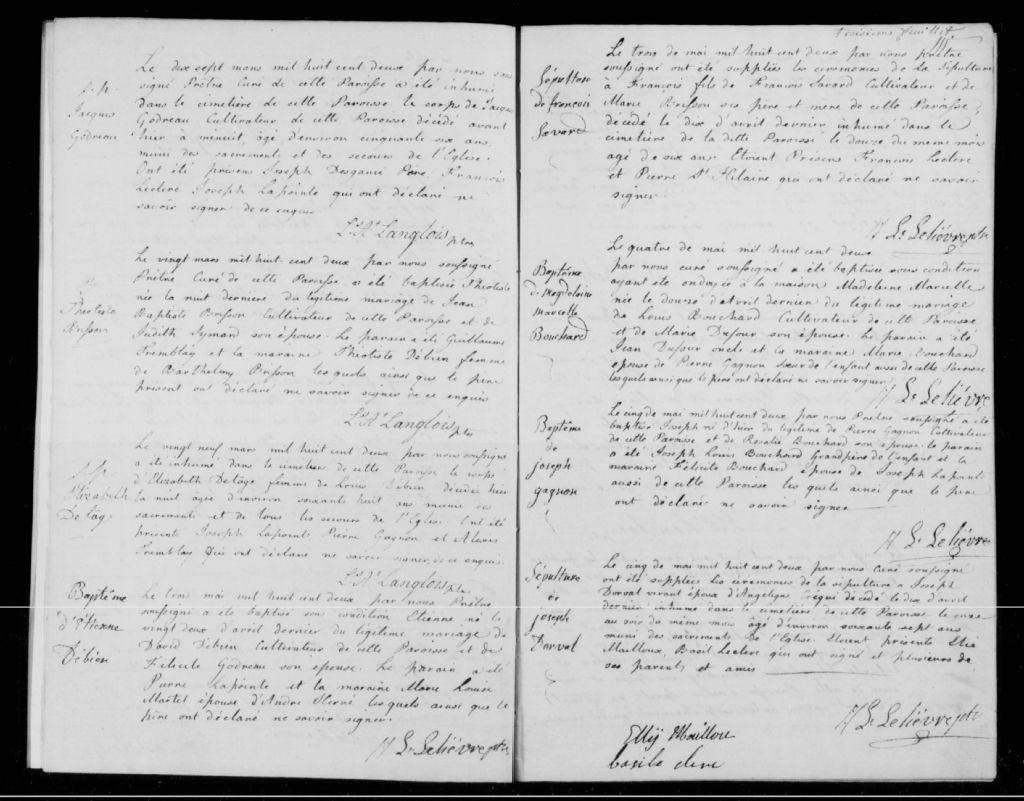 S. p.
Jacques
Godreau
Le dix sept mars mil huit cent deux par nous sous
signé Prêtre Curé de cette Paroisse a été inhumé
dans le cimetière de cette Paroisse le corps de Jacques
Godreau Cultivateur de cette Paroisse décédé avant
hier à minuit, âgé d'environ cinquante six ans,
muni des sacrements et des secours de l'Eglise.
Ont été présens Joseph Desgané Père François
Leclerc Joseph Lapointe qui ont déclaré ne
savoir signer de ce enquis
Langlois ptre
Théotiste
Brisson
Le vingt mars mil huit cent deux par nous soussigné
Prêtre Curé de cette Paroisse a été baptisée Théotiste
née la nuit derniere du legitime mariage de Jean
Baptiste Brisson Cultivateur de cette Paroisse et de
Judith Symard son épouse. Le parain a été Guillaume
Tremblay et la maraine Théotiste Debien femme
de Barthelmy Brisson les quels ainsi que le pere
présent ont déclaré ne savoir signer de ce enquis
Langlois ptre
Elizabeth
Delâge
Le vingt neuf mars mil huit cent deux par nous soussigné
a été inhumé dans le cimetiere de cette Paroisse le corps
d'Elizabeth Delâge femme de Louis Debien décédée hier
la nuit âgée d'environ soixante huit ans munie des
sacrements et de tous les secours de l'Eglise. Ont été
présent Joseph Lapointe, Pierre Gagnon et Alexis
Tremblay qui ont déclaré ne savoir signer, de ce enquis.
Langlois ptre
Baptême
d'Etienne
Débien
Le trois mai mil huit cent deux par nous Prêtre
soussigné a été baptisé sous condition Etienne né le
vingt deux d'avril dernier du legitime mariage de
David Debien Cultivateur de cette Paroisse et de
Felicité Godreau son epouse. Le parain a été
Pierre Lapointe et la maraine Marie Louise
Martel épouse d'André Hervé lesquels ainsi que le
père ont déclaré ne savoir signer.
Lelièvre ptre
troisieme feuillet
Sépulture
de françois
Savard
Le trois de mai mil huit cent deux par nous prêtre
soussigné ont été supplées les cérémonies de la sépulture
à François fils de François Savard Cultivateur et de
Marie Brisson ses père et mère de cette Paroisse,
décédé le dix d'avril dernier inhumé dans le
cimetière de la ditte Paroisse le douze du meme mois
agé de six ans. Etoient Présens François Leclerc
et Pierre St Hilaire qui ont déclaré ne savoir
signer.
Lelièvre ptre
Baptême
de Magdeleine
marcelle
Bouchard
Le quatre de mai mil huit cent deux
par nous curé soussigné a été baptisée sous condition
ayant été ondoyée à la maison Madeleine Marcelle
née le douze d'Avril dernier du légitime mariage
de Louis Bouchard Cultivateur de cette Paroisse
et de Marie Dufour son épouse. Le parain a été
Jean Dufour oncle et la maraine Marie Bouchard
epouse de Pierre Gagnon Sœur de l'enfant aussi de cette Paroisse
lesquels ainsi que le pere ont déclaré ne savoir signer
Lelièvre
Baptême
de
joseph
gagnon
Le cinq de mai mil huit cent deux par nous Prêtre soussigné a été
baptisé Joseph né d'hier du legitime de Pierre Gagnon Cultivateur
de cette Paroisse et de Rosalie Bouchard son épouse. le parain
a été Joseph Louis Bouchard Grandpère de l'enfant et la
maraine Félicité Bouchard épouse de Joseph Lapointe
aussi de cette Paroisse les quels ainsi que le pere
ont déclaré ne savoir signer
Lelièvre
Sépulture
de
joseph
Darvat
Le cinq de mai mil huit cent deux par nous Curé soussigné
ont été supplées les cérémonies de la sépulture à Joseph
vivant époux d'Angelique décédé le dix d'avril
dernier inhumé dans le cimetiere de cette Paroisse le onze
au soir du même mois âgé d'environ soixante sept ans
muni des sacrements de l'Eglise. Etoient présents Elie
Mailloux, Basil Leclerc qui ont signé et plusieurs de
ses parents et amis
Lelièvre ptre
Elly Maillou
basile clere